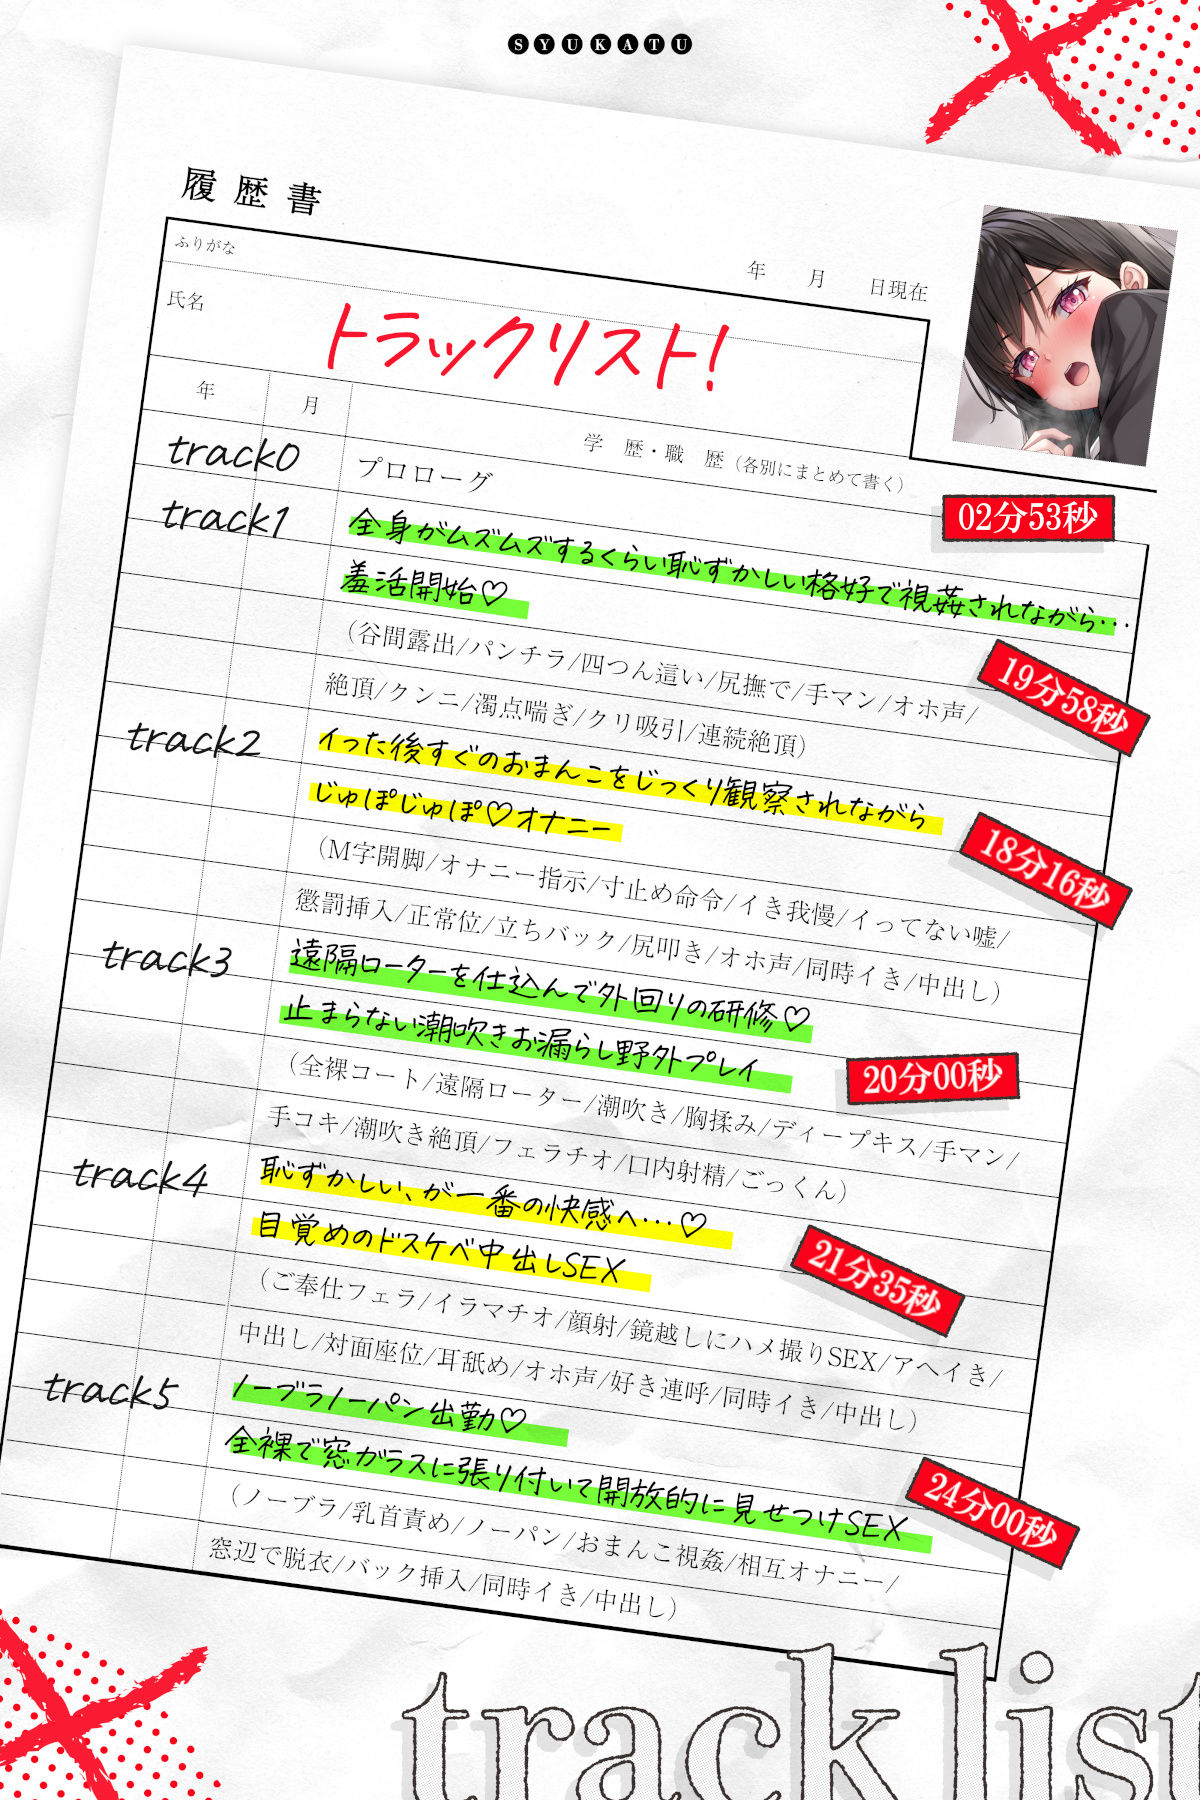 SYUKATU
履歴書
ふりがな
年 月 日現在
氏名
トラックリスト!
年 月
学 歴・職 歴(各別にまとめて書く)
track0 プロローグ
02分53秒
track1 全身がムズムズするくらい恥ずかしい格好で視姦されながら…
羞活開始♡
(谷間露出/パンチラ/四つん這い/尻撫で/手マン/オホ声/
19分58秒
絶頂/クンニ/濁点喘ぎ/クリ吸引/連続絶頂)
track2 イった後すぐのおまんこをじっくり観察されながら
じゅぽじゅぽ♡オナニー
18分16秒
(M字開脚/オナニー指示/寸止め命令/イき我慢/イってない嘘/
懲罰挿入/正常位/立ちバック/尻叩き/オホ声/同時イき/中出し)
track3 遠隔ローターを仕込んで外回りの研修♡
止まらない潮吹きお漏らし野外プレイ
20分00秒
(全裸コート/遠隔ローター/潮吹き/胸揉み/ディープキス/手マン/
手コキ/潮吹き絶頂/フェラチオ/口内射精/ごっくん)
track4 恥ずかしい、が一番の快感へ…♡
目覚めのドスケベ中出しSEX
21分35秒
(ご奉仕フェラ/イラマチオ/顔射/鏡越しにハメ撮りSEX/アヘイき/
中出し/対面座位/耳舐め/オホ声/好き連呼/同時イき/中出し)
track5 ノーブラノーパン出勤♡
全裸で窓ガラスに張り付いて開放的に見せつけSEX
24分00秒
(ノーブラ/乳首責め/ノーパン/おまんこ視姦/相互オナニー/
窓辺で脱衣/バック挿入/同時イき/中出し)
track list